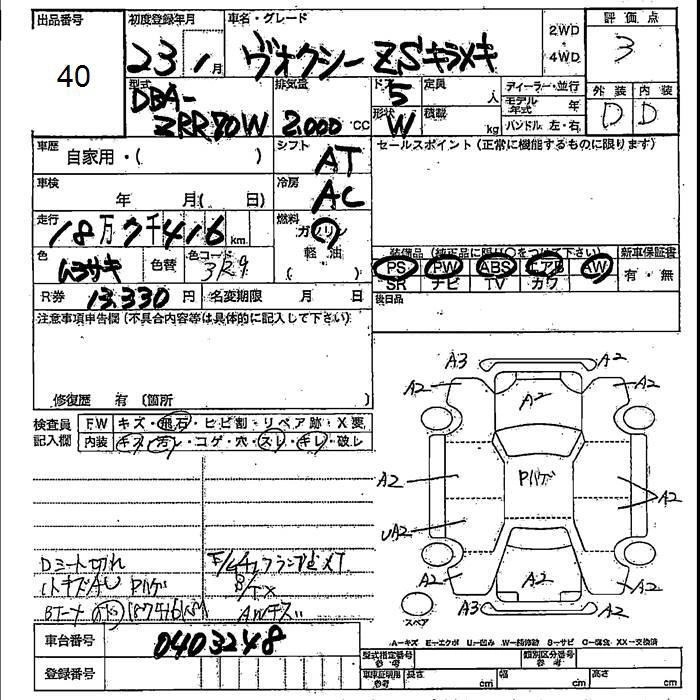 出品番号 初度登録年月 車名・グレード 2WD 評価点
40 23 1月 ヴォクシー ZSキラメキ 4WD 3
型式 排気量 ドア 定員 ディーラー・並行 外装 内装
DBA- 5 人 モデル年式 年 D D
ZRR70W 2.000 CC 形状 W 積載 kg ハンドル 左・右
車歴 シフト セールスポイント (正常に機能するものに限ります)
自家用・( ) AT
車検 冷房
年 月( 日) AC
走行 燃料
18万7千416km ガソリン
色 ムラサキ 色替 色コード 3R9 軽油 装備品 (純正品に限り○をつけて下さい) 新車保証書
( ) PS PW ABS エアB AW 有・無
R券 13.330円 名変期限 月 日 SR ナビ TV カワ
注意事項申告欄 (不具合内容等は具体的に記入して下さい) 後日品
A3 A2
A2 A2 A2
修復歴 有 (箇所 )
検査員記入欄 FW キズ・飛石・ヒビ割・リペア跡・X要
内装 キズ・汚レ・コゲ・穴・スレ・キレ・破レ
A2 Pハゲ A2
UA2
Dシート切れ
Pハゲ A2 A2 A2
187416km AWキズ A3 A2
スペア
車台番号 0403248 A=キズ E=エクボ U=凹み W=板修動 S=サビ C=腐食 XX=交換済
型式指定番号 参考 類別区分番号 参考
登録番号 車庫証明用 参考 長さ cm 幅 cm 高さ cm